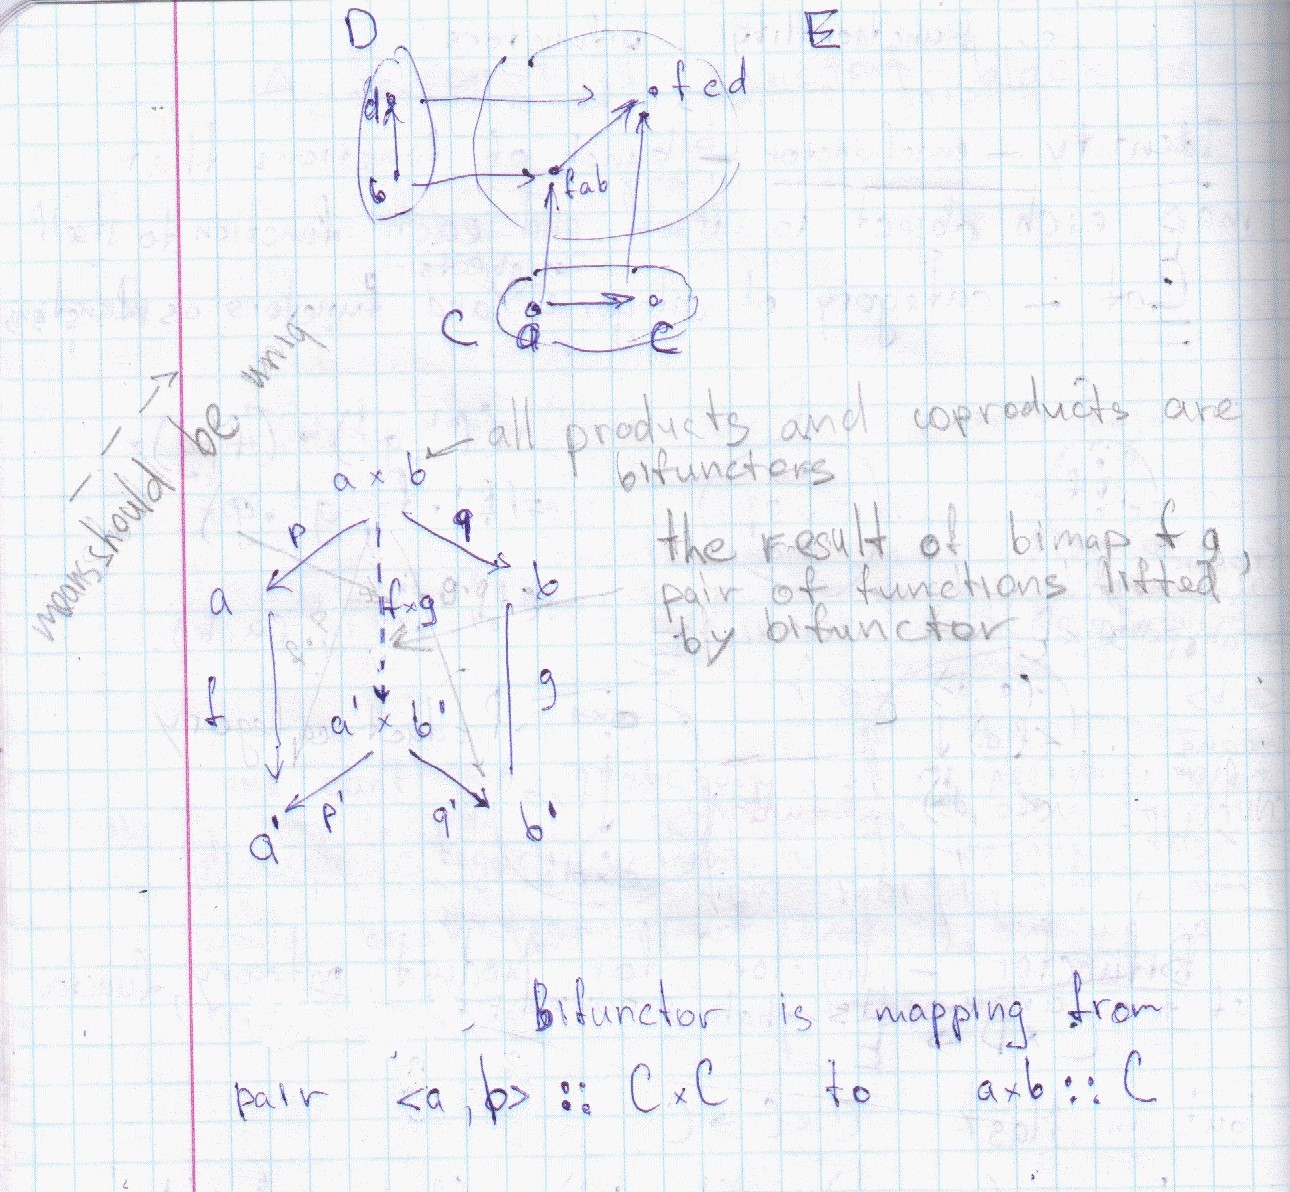 D E
d f c d
b f a b
C a c
means should be uniq
all products and coproducts are
bifunctors
a × b
p q
a b
f×g
the result of bimap f g,
pair of functions lifted
by bifunctor
f g
a' × b'
p' q'
a' b'
Bifunctor is mapping from
pair <a, b> :: C×C to a×b :: C